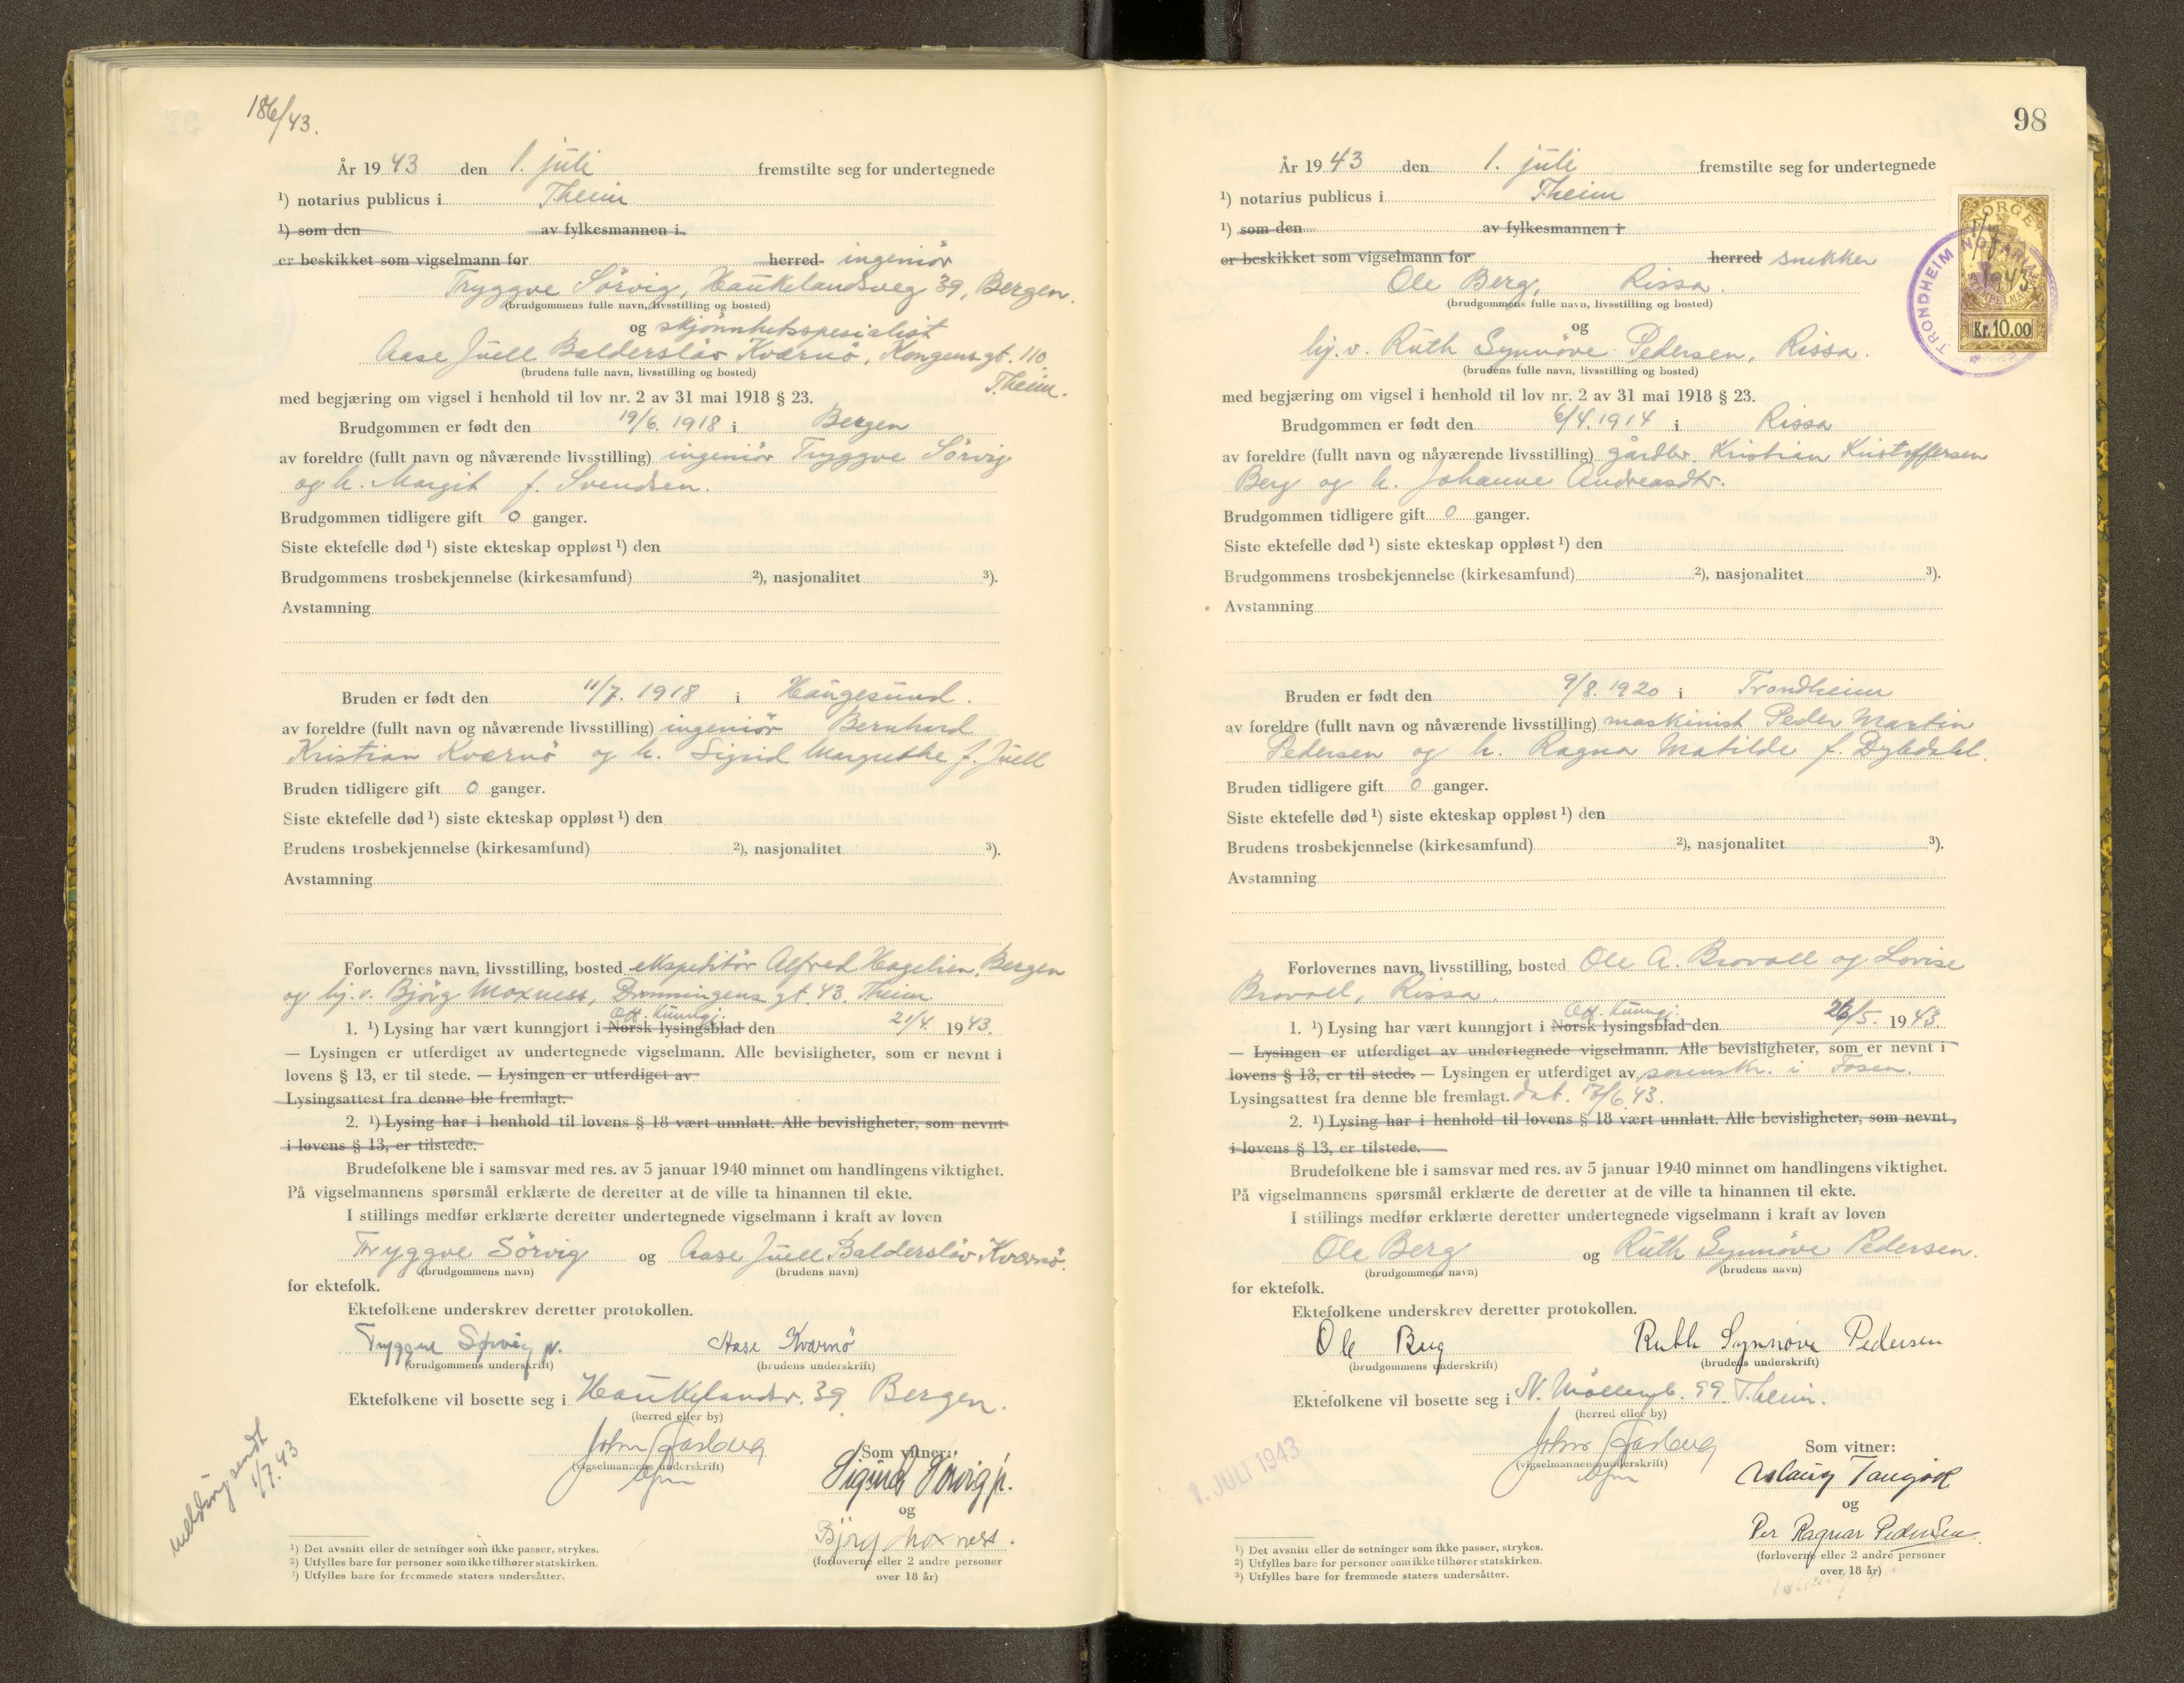 186/43.
År 1943 den 1. juli fremstilte seg for undertegnede
¹) notarius publicus i Theim
¹) som den av fylkesmannen i
er beskikket som vigselmann for herred ingeniör
Tryggve Sörvig, Haukelandsveg 39, Bergen.
(brudgommens fulle navn, livsstilling og bosted)
og skjönnhetsspesialist
Aase Juell Balderslöv Kværnö, Kongensgt. 110
(brudens fulle navn, livsstilling og bosted) Theim.
med begjæring om vigsel i henhold til lov nr. 2 av 31 mai 1918 § 23.
Brudgommen er født den 19/6. 1918 i Bergen
av foreldre (fullt navn og nåværende livsstilling) ingeniör Tryggve Sörvig
og h. Margit f. Svendsen.
Brudgommen tidligere gift 0 ganger.
Siste ektefelle død ¹) siste ekteskap oppløst ¹) den
Brudgommens trosbekjennelse (kirkesamfund) ²), nasjonalitet ³).
Avstamning
Bruden er født den 11/7. 1918 i Haugesund.
av foreldre (fullt navn og nåværende livsstilling) ingeniör Bernhard
Kristian Kværnö og h. Sigrid Margrethe f. Juell
Bruden tidligere gift 0 ganger.
Siste ektefelle død ¹) siste ekteskap oppløst ¹) den
Brudens trosbekjennelse (kirkesamfund) ²), nasjonalitet ³).
Avstamning
Forlovernes navn, livsstilling, bosted ekspeditör Alfred Hagelien, Bergen
og hj. v. Björg Moxness, Dronningens gt. 43. Theim
Off. Kunngj.
1. ¹) Lysing har vært kunngjort i Norsk lysingsblad den 21/4. 1943.
— Lysingen er utferdiget av undertegnede vigselmann. Alle bevisligheter, som er nevnt i
lovens § 13, er til stede. — Lysingen er utferdiget av
Lysingsattest fra denne ble fremlagt.
2. ¹) Lysing har i henhold til lovens § 18 vært unnlatt. Alle bevisligheter, som nevnt
i lovens § 13, er tilstede.
Brudefolkene ble i samsvar med res. av 5 januar 1940 minnet om handlingens viktighet.
På vigselmannens spørsmål erklærte de deretter at de ville ta hinannen til ekte.
I stillings medfør erklærte deretter undertegnede vigselmann i kraft av loven
Tryggve Sörvig og Aase Juell Balderslöv Kværnö.
(brudgommens navn) (brudens navn)
for ektefolk.
Ektefolkene underskrev deretter protokollen.
Tryggve Sørvig jr. Aase Kværnö
(brudgommens underskrift) (brudens underskrift)
Ektefolkene vil bosette seg i Haukelandsv. 39 Bergen.
(herred eller by)
Som vitner:
(vigselmannens underskrift)
Sigurd Sörvig jr.
og
Björg Moxness.
(forloverne eller 2 andre personer
over 18 år)
melding sendt
1/7.43
¹) Det avsnitt eller de setninger som ikke passer, strykes.
²) Utfylles bare for personer som ikke tilhører statskirken.
³) Utfylles bare for fremmede staters undersåtter.
98
År 1943 den 1. juli fremstilte seg for undertegnede
¹) notarius publicus i Theim
¹) som den av fylkesmannen i
er beskikket som vigselmann for herred snekker
Ole Berg, Rissa.
(brudgommens fulle navn, livsstilling og bosted)
og
hj. v. Ruth Synnöve Pedersen, Rissa.
(brudens fulle navn, livsstilling og bosted)
NORGE
1/7 1943
Kr. 10.00
TRONDHEIM NOTARIAL
med begjæring om vigsel i henhold til lov nr. 2 av 31 mai 1918 § 23.
Brudgommen er født den 6/4. 1914 i Rissa
av foreldre (fullt navn og nåværende livsstilling) gårdbr. Kristian Kristoffersen
Berg og h. Johanne Andreasdtr.
Brudgommen tidligere gift 0 ganger.
Siste ektefelle død ¹) siste ekteskap oppløst ¹) den
Brudgommens trosbekjennelse (kirkesamfund) ²), nasjonalitet ³).
Avstamning
Bruden er født den 9/8. 1920 i Trondheim
av foreldre (fullt navn og nåværende livsstilling) maskinist Peder Martin
Pedersen og h. Ragna Matilde f.
Bruden tidligere gift 0 ganger.
Siste ektefelle død ¹) siste ekteskap oppløst ¹) den
Brudens trosbekjennelse (kirkesamfund) ²), nasjonalitet ³).
Avstamning
Forlovernes navn, livsstilling, bosted Ole A. Brovoll og Lovise
Brovoll, Rissa.
Off. Kunngj.
1. ¹) Lysing har vært kunngjort i Norsk lysingsblad den 26/5. 1943.
— Lysingen er utferdiget av undertegnede vigselmann. Alle bevisligheter, som er nevnt i
lovens § 13, er til stede. — Lysingen er utferdiget av sorenskr. i Fosen.
Lysingsattest fra denne ble fremlagt. dat. 17/6.43.
2. ¹) Lysing har i henhold til lovens § 18 vært unnlatt. Alle bevisligheter, som nevnt,
i lovens § 13, er tilstede.
Brudefolkene ble i samsvar med res. av 5 januar 1940 minnet om handlingens viktighet.
På vigselmannens spørsmål erklærte de deretter at de ville ta hinannen til ekte.
I stillings medfør erklærte deretter undertegnede vigselmann i kraft av loven
Ole Berg og Ruth Synnöve Pedersen.
(brudgommens navn) (brudens navn)
for ektefolk.
Ektefolkene underskrev deretter protokollen.
Ole Berg Ruth Synnøve Pedersen
(brudgommens underskrift) (brudens underskrift)
Ektefolkene vil bosette seg i N. Möllenb. 99. Theim.
(herred eller by)
1. JULI 1943
Som vitner:
(vigselmannens underskrift)
Aslaug
og
Per Ragnar Pedersen
(forloverne eller 2 andre personer
over 18 år)
¹) Det avsnitt eller de setninger som ikke passer, strykes.
²) Utfylles bare for personer som ikke tilhører statskirken.
³) Utfylles bare for fremmede staters undersåtter.